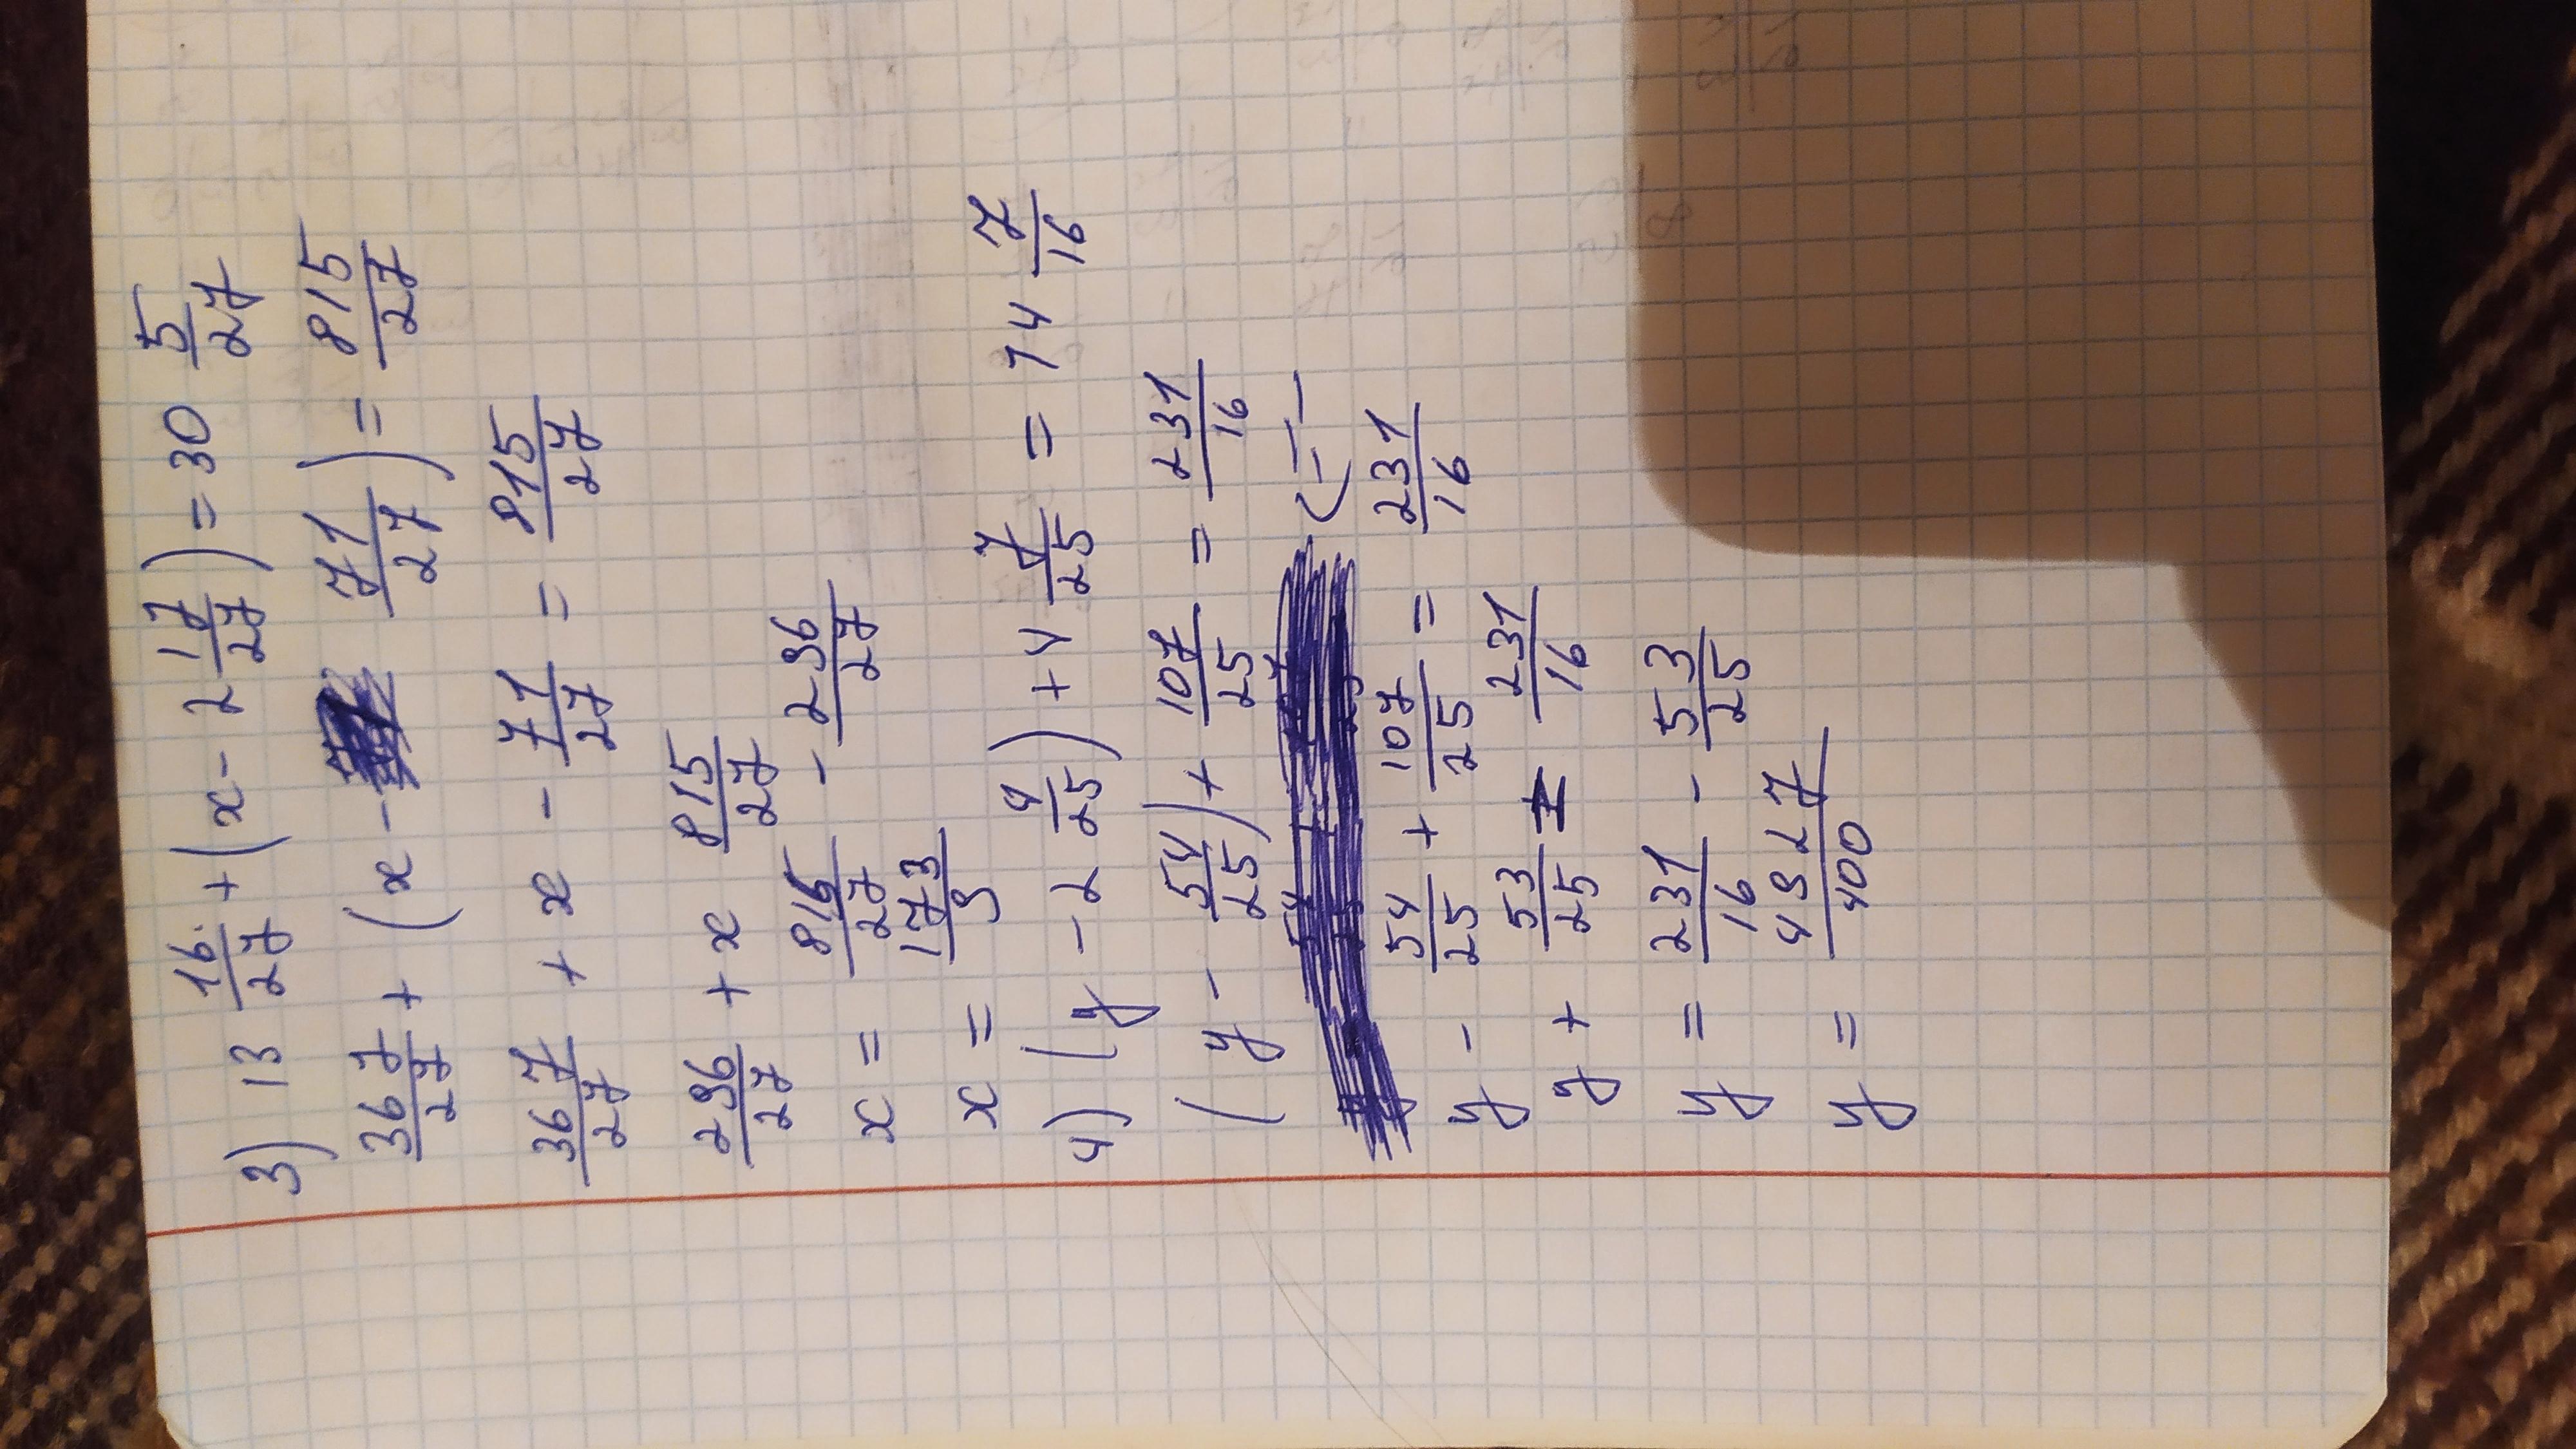 3) 13 16/27 + (x - 2 17/27) = 30 5/27
367/27 + (x - 71/27) = 815/27
367/27 + x - 71/27 = 815/27
296/27 + x 815/27
x = 815/27 - 296/27
x = 173/9
4) (y - 2 4/25) + 4 7/25 = 14 7/16
(y - 54/25) + 107/25 = 231/16
y - 54/25 + 107/25 = 231/16
y + 53/25 = 231/16
y = 231/16 - 53/25
y = 4927/400